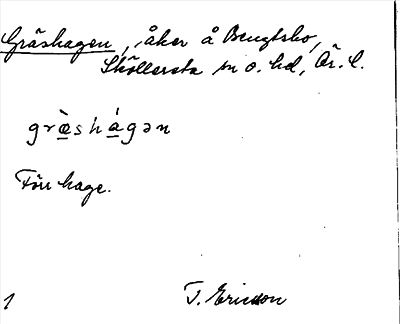 Gräshagen, åker å Bengtsbo,
Sköllersta sn o. hd, Ör. l.
græ̀shágən
Förr hage.
T. Ericsson
1